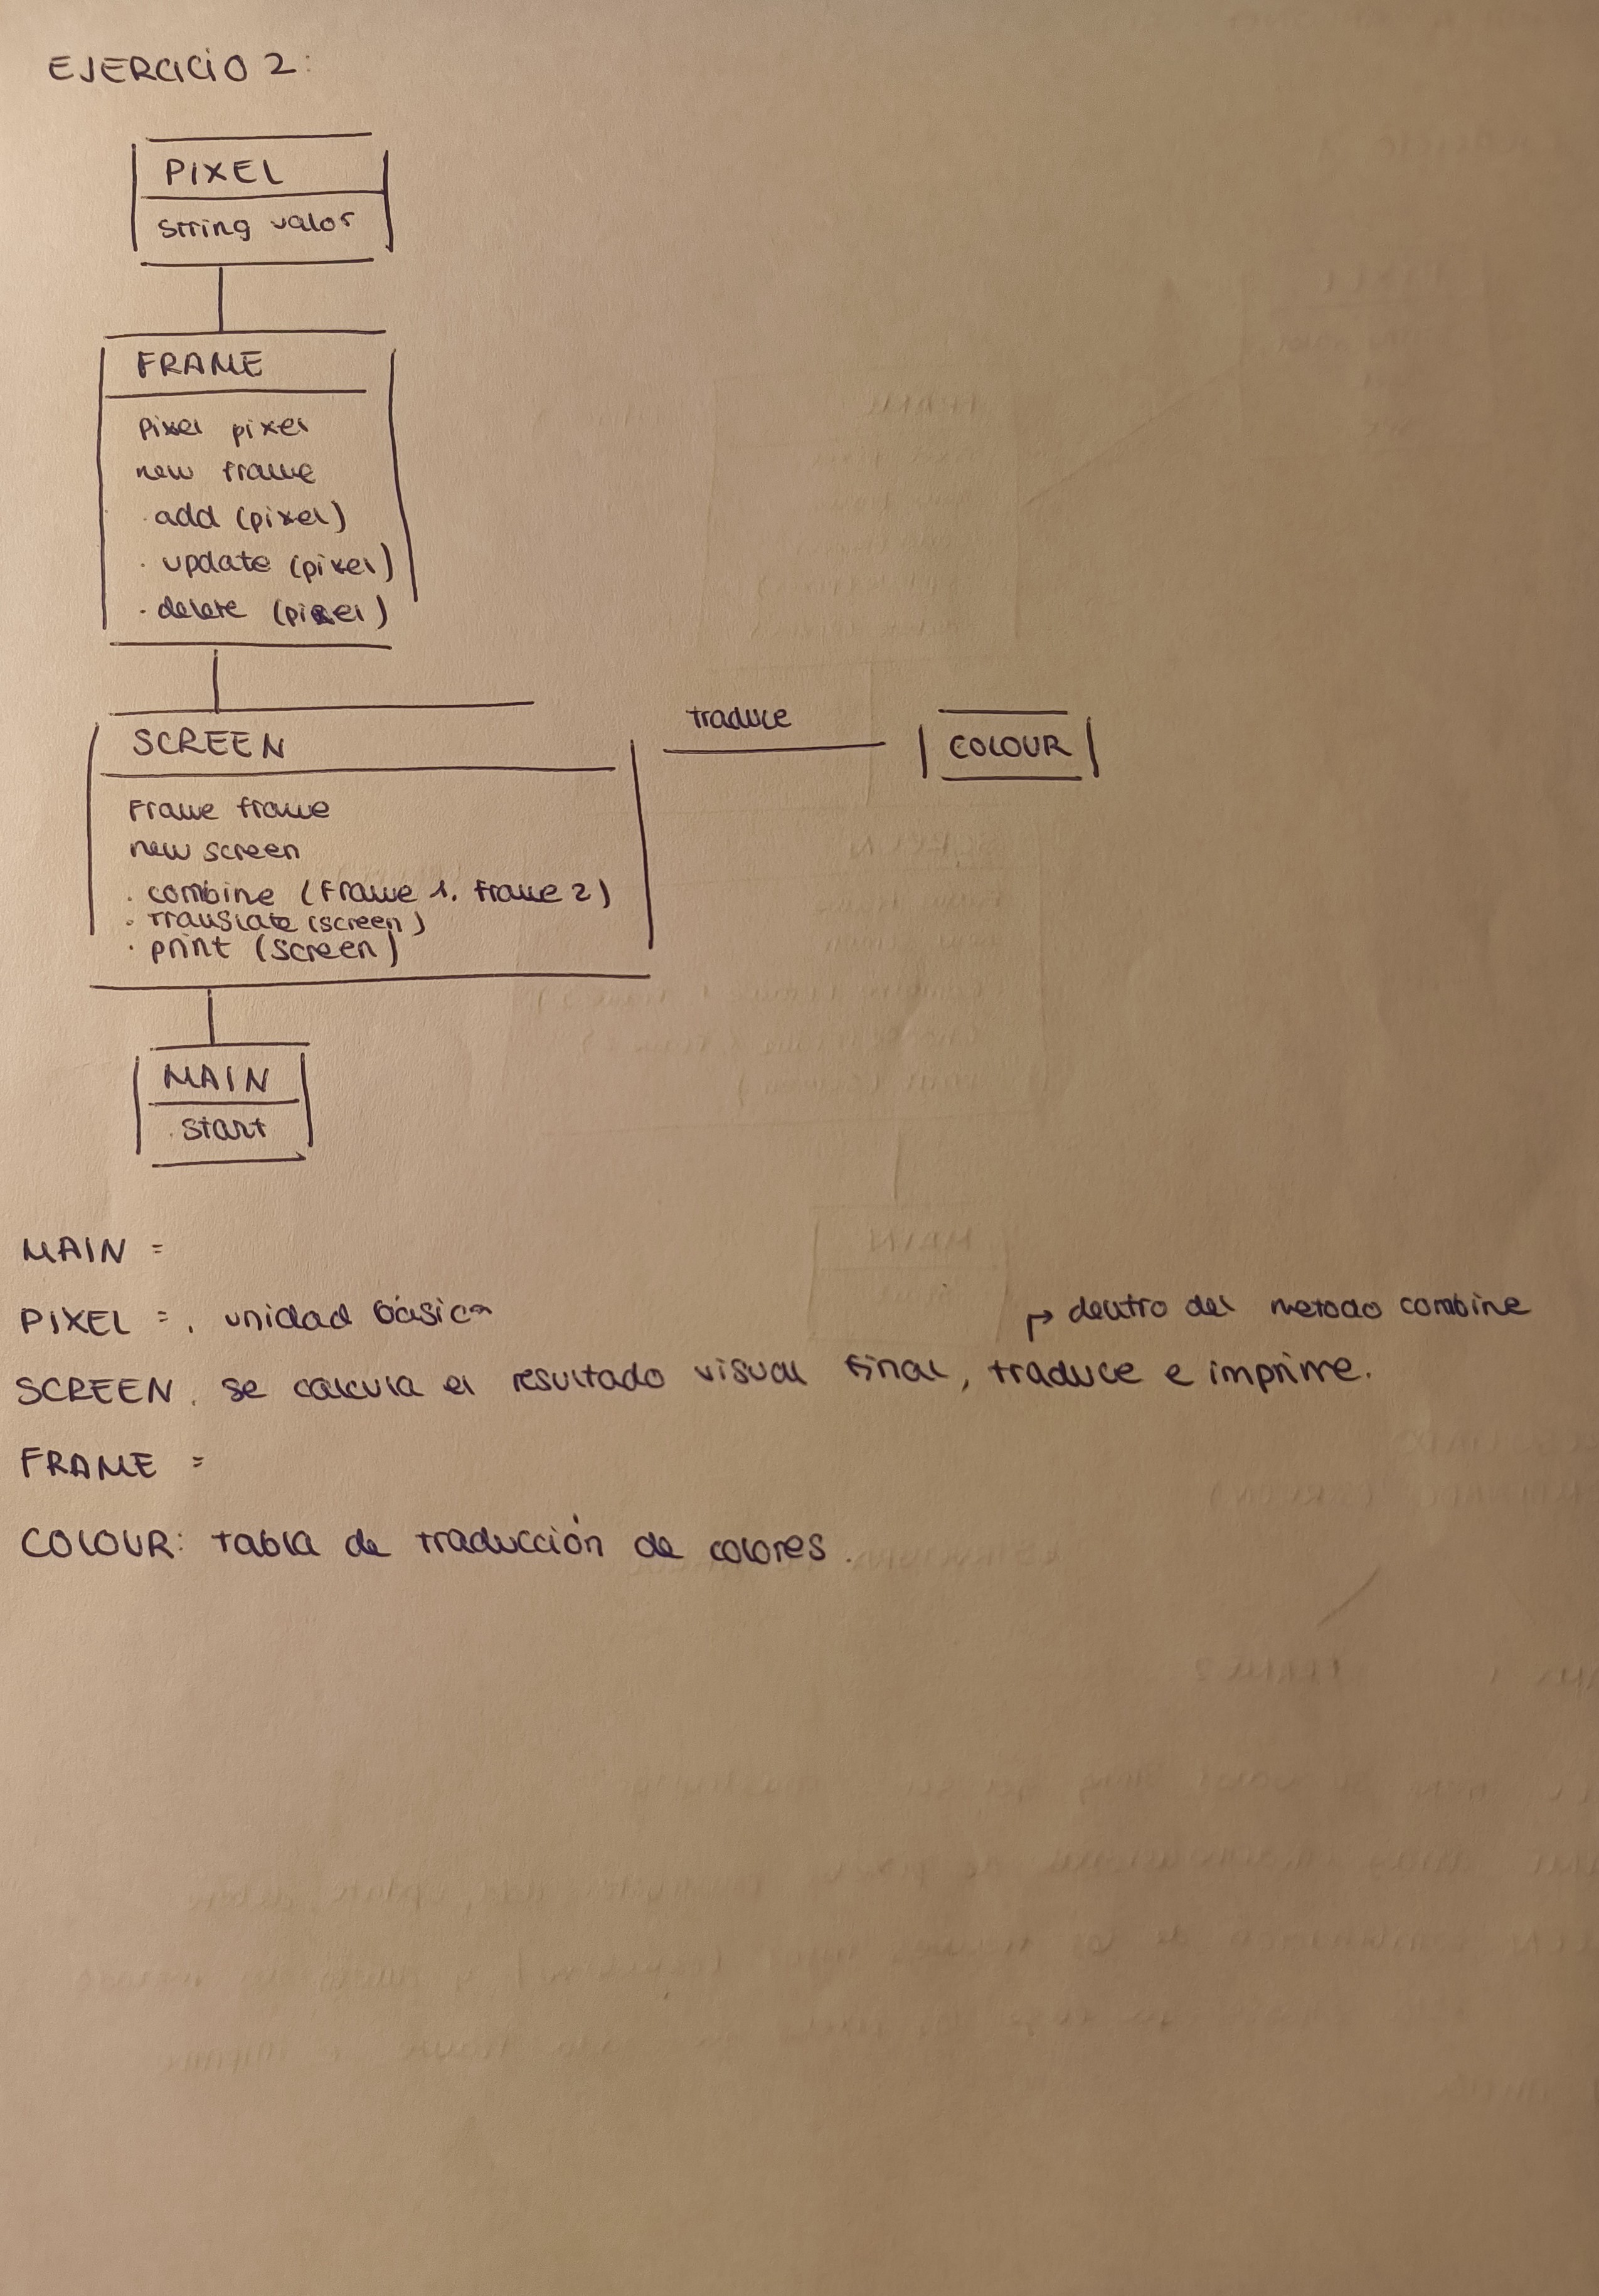 EJERCICIO 2:
PIXEL
String valor
FRAME
Pixel pixel
new frame
· add (pixel)
· update (pixel)
· delete (pixel)
SCREEN
traduce
COLOUR
Frame frame
new screen
· combine (Frame 1, Frame 2)
· translate (screen)
· print (screen)
MAIN
. start
MAIN =
PIXEL =. unidad básica
→ dentro del metodo combine
SCREEN. se calcula el resultado visual final, traduce e imprime.
FRAME =
COLOUR: tabla de traducción de colores.